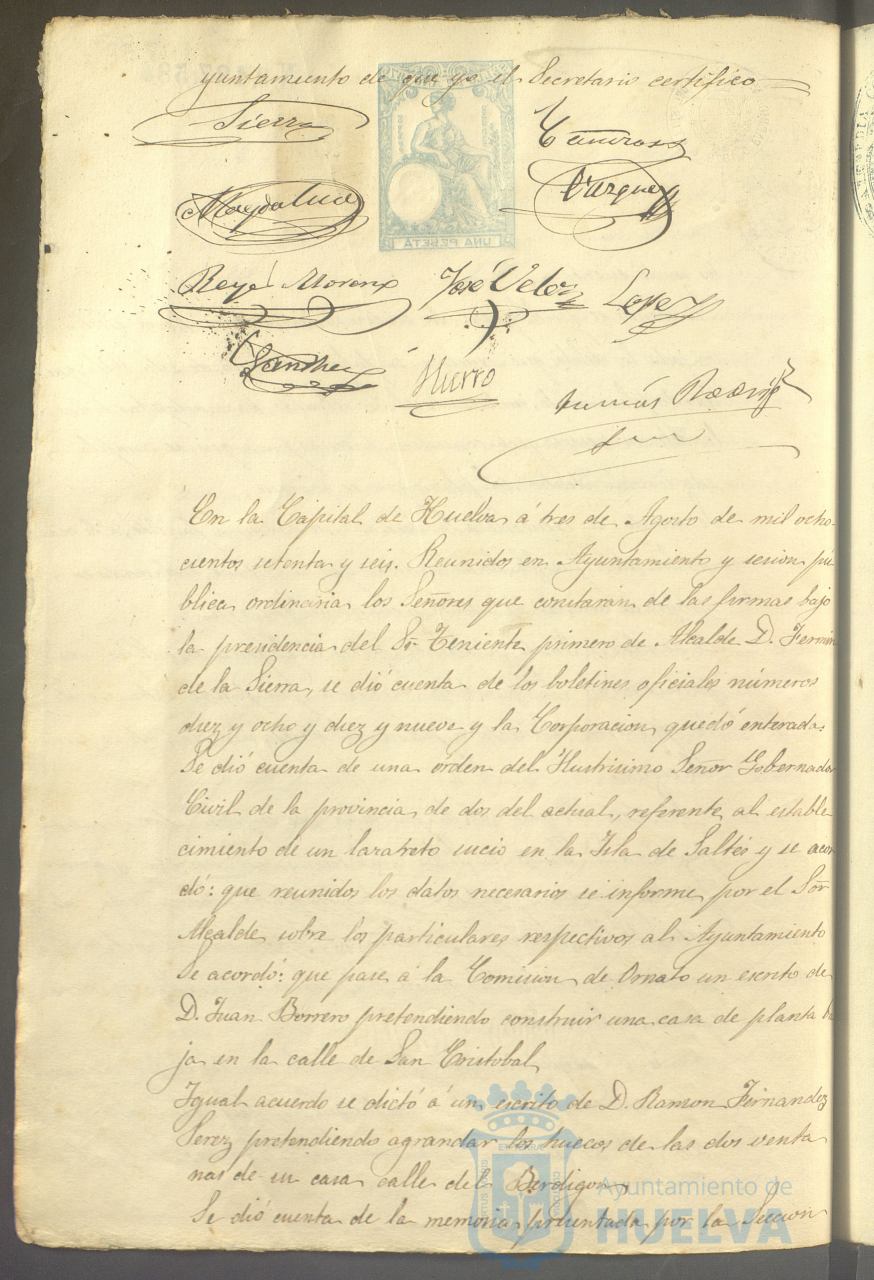 yuntamiento de que yo el Secretario certifico
Sierra
Vazquez
Magdalena
UNA PESETA
Reyes Moreno José Velez Lopez
Sanchez Hierro
Tomás Rodrig
En la Capital de Huelva á tres de Agosto de mil ocho-
cientos setenta y seis. Reunidos en Ayuntamiento y sesion pú
blica ordinaria los Señores que constarán de las firmas bajo
la presidencia del Sr. Teniente primero de Alcalde D. Fermin
de la Sierra, se dió cuenta de los boletines oficiales números
diez y ocho y diez y nueve y la Corporacion quedó enterada.
Se dió cuenta de una órden del Ilustrisimo Señor Gobernador
Civil de la provincia de dos del actual, referente al estable
cimiento de un lazareto sucio en la Isla de Saltés y se acor
dó: que reunidos los datos necesarios se informe por el Sor.
Alcalde sobre los particulares respectivos al Ayuntamiento
Se acordó: que pase á la Comision de Ornato un escrito de
D. Juan Borrero pretendiendo construir una casa de planta ba
ja en la calle de San Cristobal
Igual acuerdo se dictó á un escrito de D. Ramon Fernandez
Perez pretendiendo agrandar los huecos de las dos venta
nas de su casa calle del Berdigon
Se dió cuenta de la memoria presentada por la Seccion
Ayuntamiento de
HUELVA